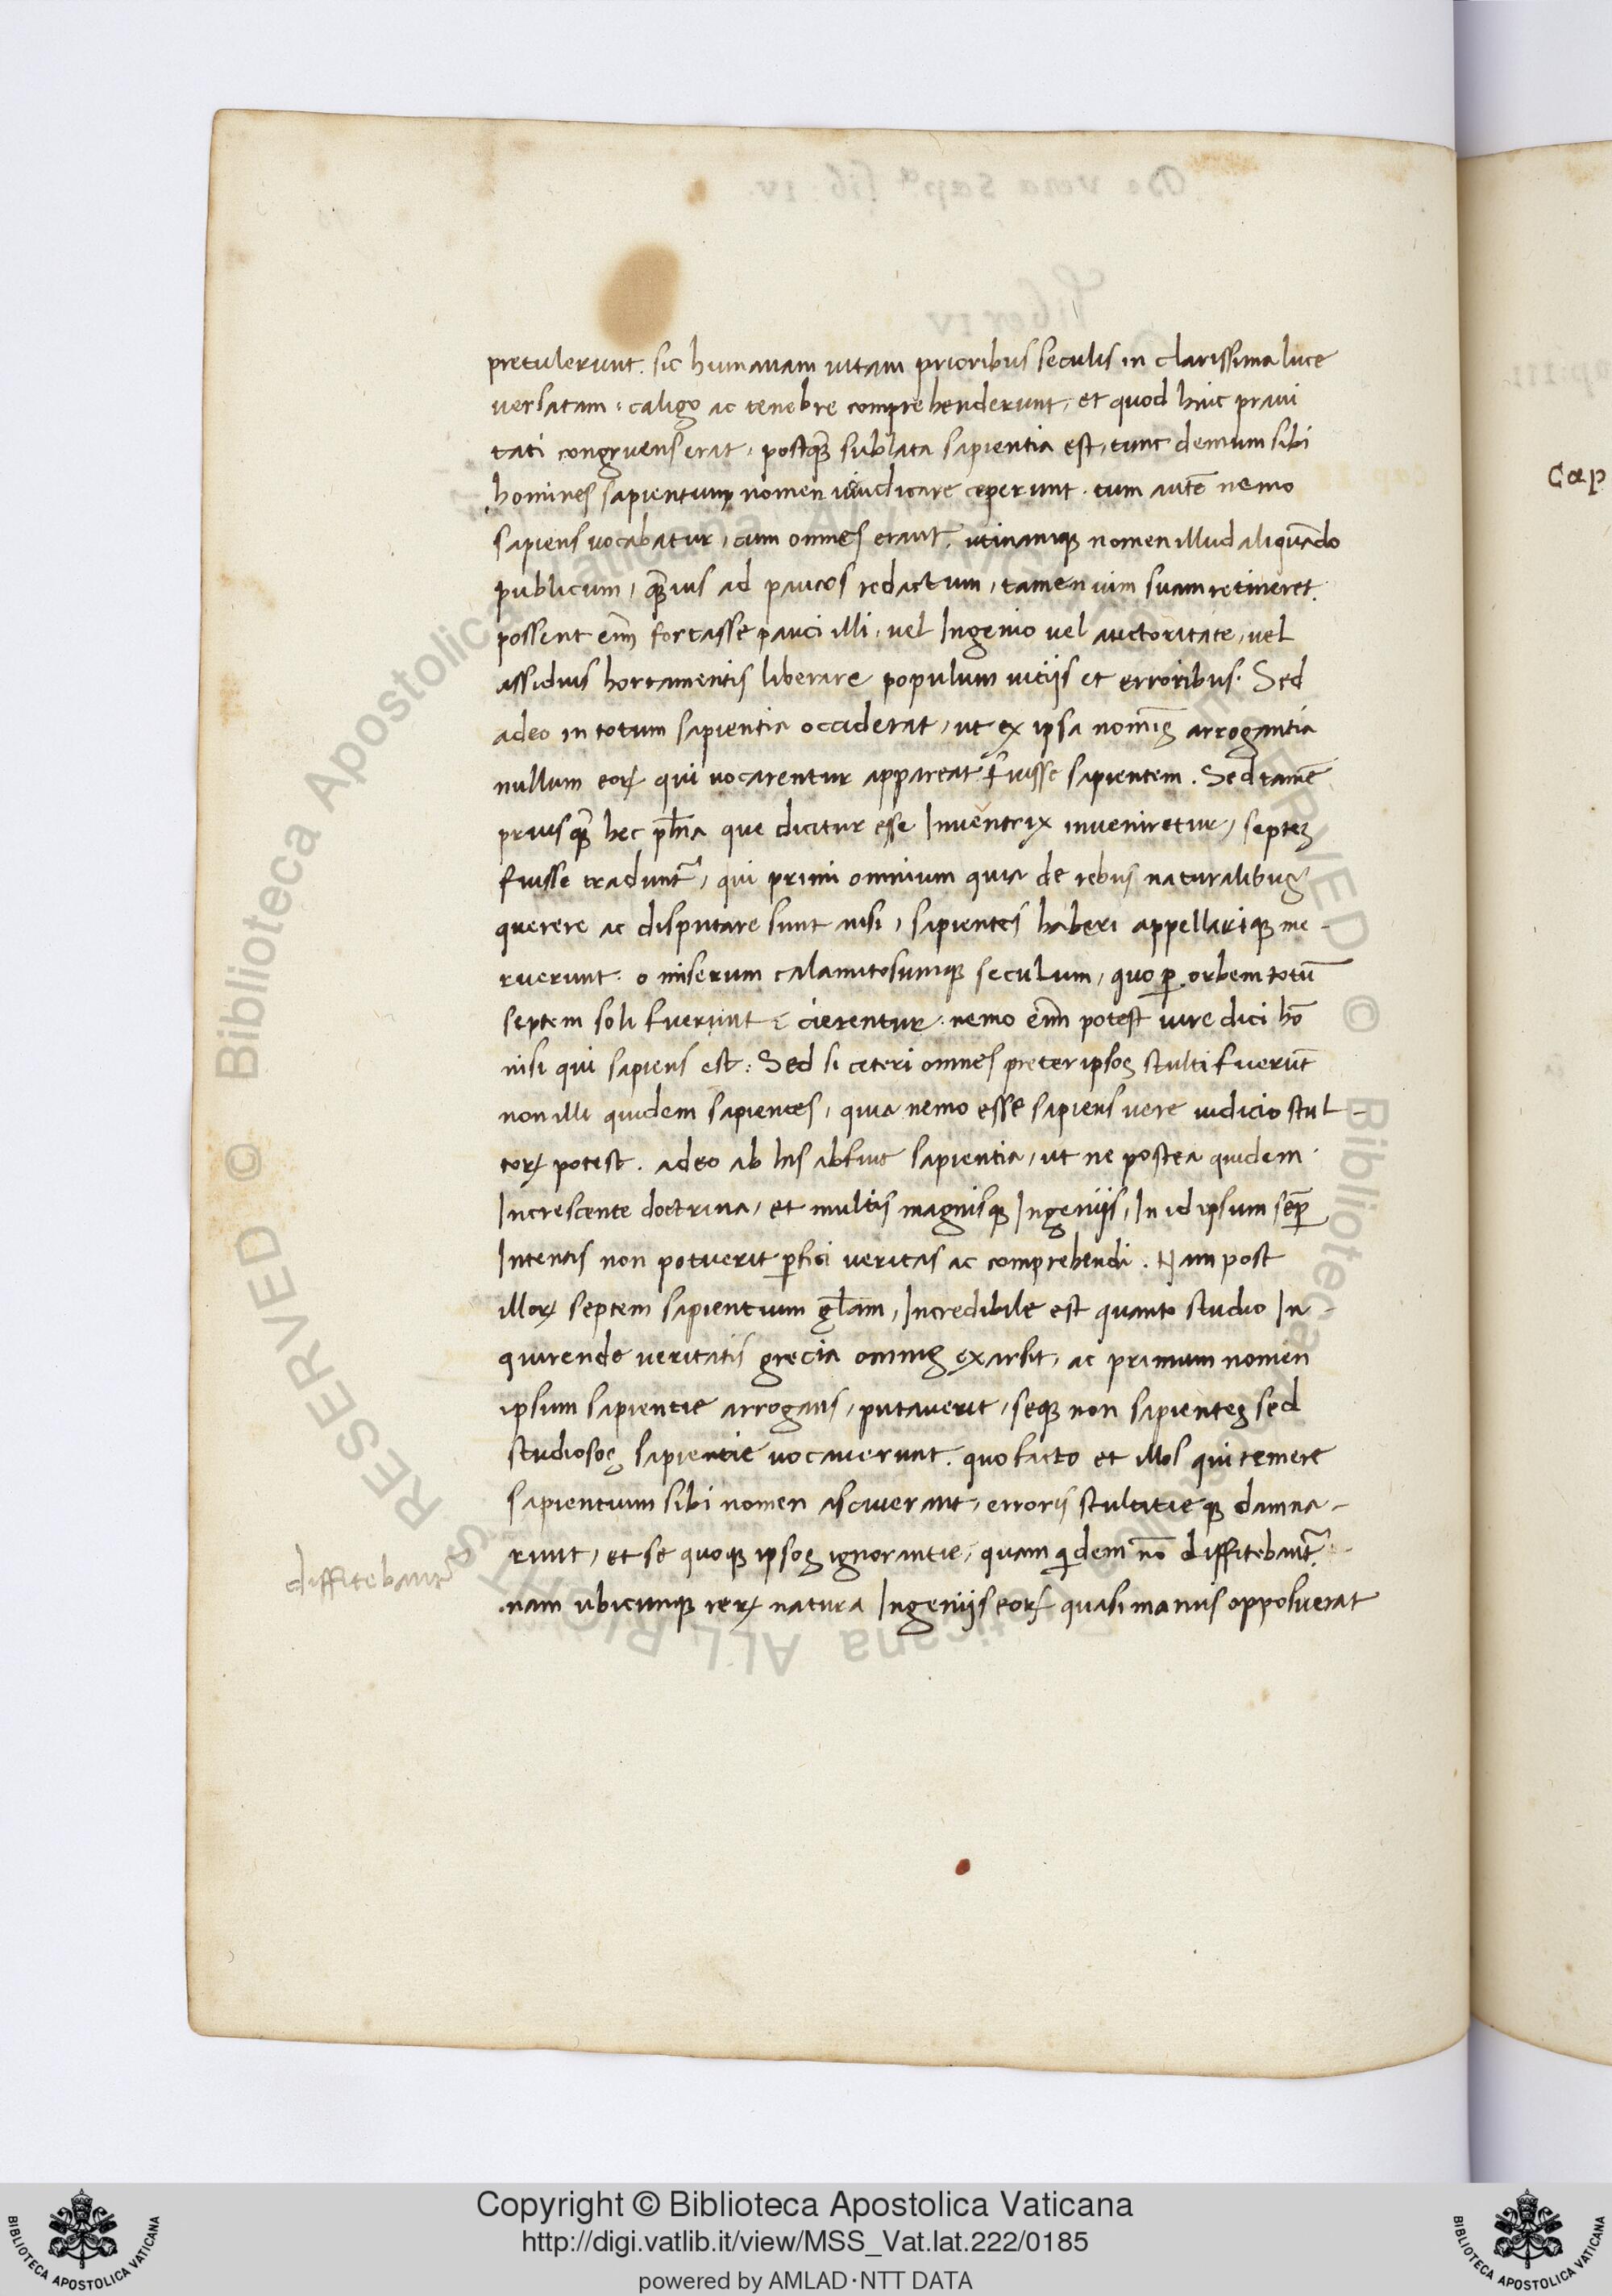 pretulerunt. sic humanam uitam prioribus seculis in clarissima luce
versatam: caligo ac tenebre comprehenderunt, et quod huic praui
tati congruens erat, postq̃ sublata sapientia est, tunc demum sibi
homines sapientum nomen uindicare ceperunt. tum autē nemo
sapiens uocabatur, cum omnes erant. utinamque nomen illud aliquādo
publicum, q̃uis ad paucos redactum, tamen uim suam retineret.
possent eñi fortasse pauci illi, uel Ingenio uel auctoritate, uel
assiduis hortamentis liberare populum uitiis et erroribus. Sed
adeo in totum sapientia occiderat, ut ex ipsa nom̃is arrogantia
nullum eorꝝ qui uocarentur appareat fuisse sapientem. Sed tamē
priusq̃ hec ph̃ia que dicitur esse Inuentrix inueniretur, septeʒ
fuisse tradunt᷑, qui primi omnium quia de rebus naturalibus
querere ac disputare sunt ausi, sapientes haberi appellariqꝫ me-
ruerunt. o miserum calamitosumqꝫ seculum, quo ꝑ orbem totū
septem soli fuerunt cierentur. nemo eñi potest iure dici hō
nisi qui sapiens est: Sed si ceteri omnes preter ipsos stulti fuerūt
non illi quidem sapientes, quia nemo esse sapiens uere iudicio stul-
torꝝ potest. adeo ab his abfuit sapientia, ut ne postea quidem
Increscente doctrina, et multis magnisqꝫ Ingeniis, In id ipsum semꝑ
Intentis non potuerit ꝑfici ueritas ac comprehendi. Nam post
illorꝝ septem sapientium gl̃am, Incredibile est quanto studio In-
quirende ueritatis grecia omnis exarsit, ac primum nomen
ipsum sapientie arrogans, putauerit, seqꝫ non sapientes sed
studiosos sapientie uocauerunt. quo facto et illos qui temere
sapientium sibi nomen asciuerant, erroris stultitieqꝫ damna-
runt, et se quoqꝫ ipsos ignorantie, quam qidem nō diffitebant᷑.
nam ubicumqꝫ rerꝝ natura Ingeniis eorꝝ quasi manus opposuerat
diffitebantur
Cap
Copyright © Biblioteca Apostolica Vaticana
http://digi.vatlib.it/view/MSS_Vat.lat.222/0185
powered by AMLAD·NTT DATA
BIBLIOTECA APOSTOLICA VATICANA
BIBLIOTECA APOSTOLICA VATICANA